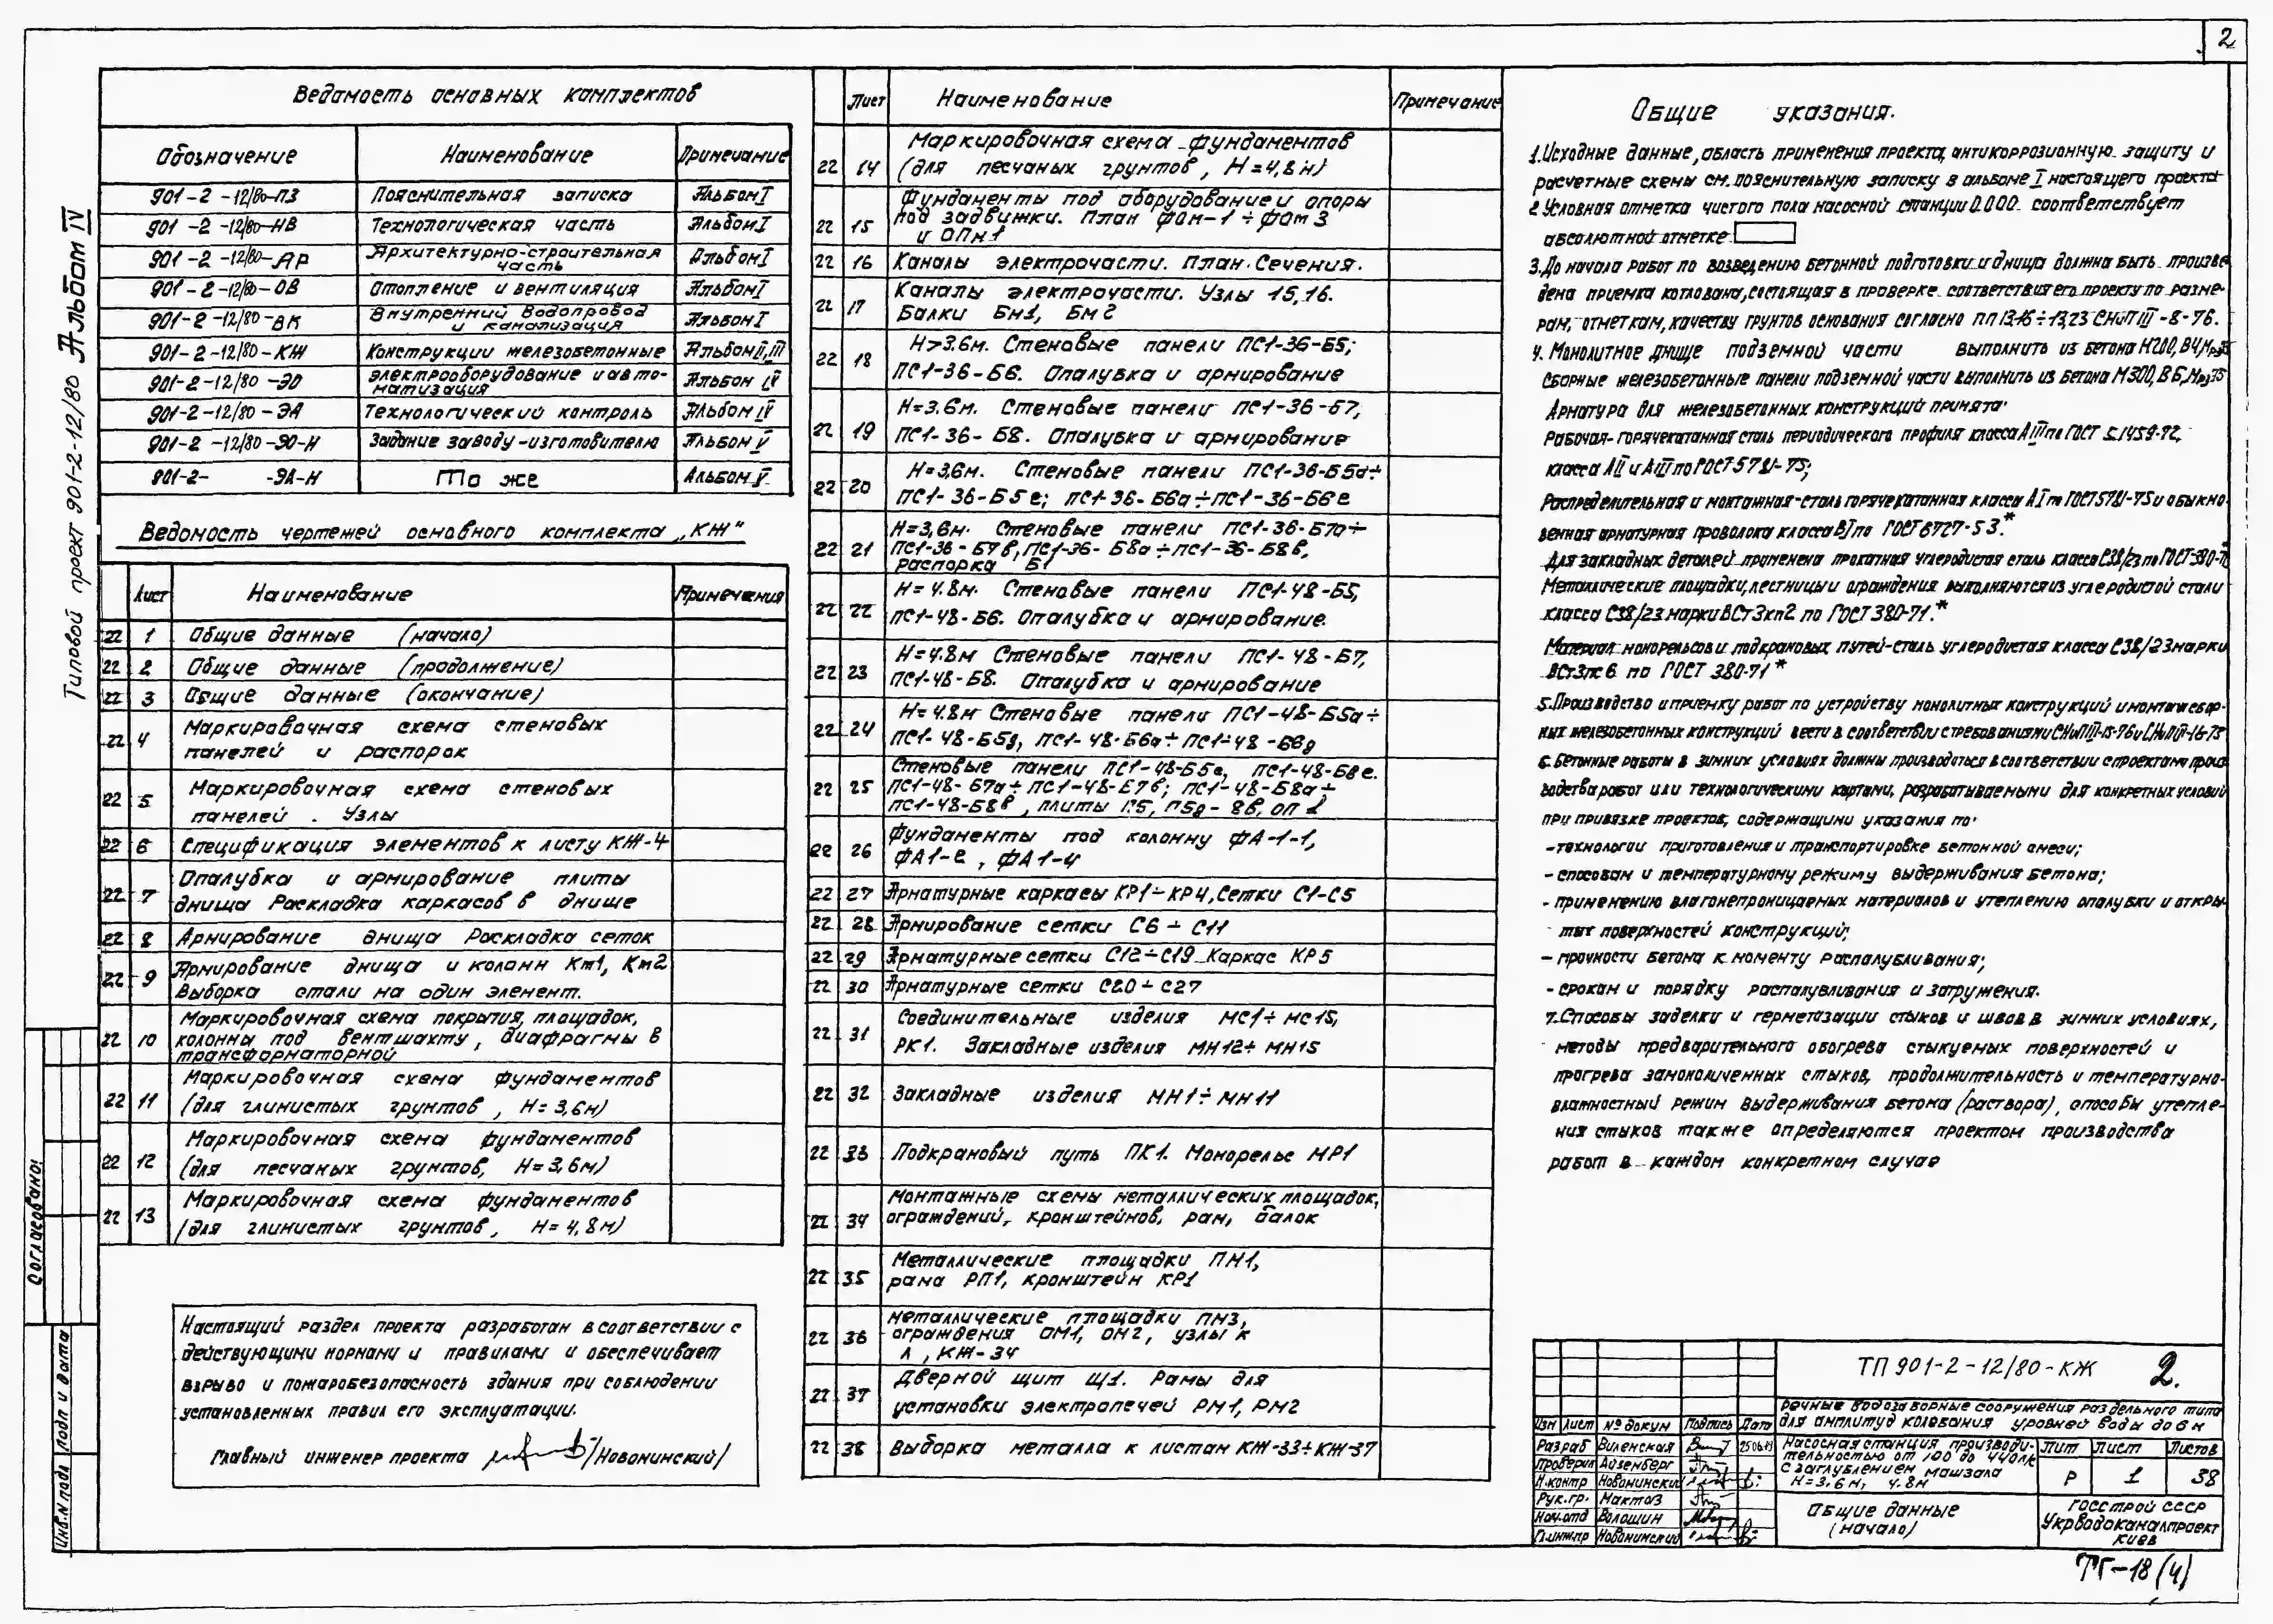 2
Типовой проект 901-2-12/80 Альбом IV
Ведомость основных комплектов
Обозначение Наименование Примечание
901-2-12/80-ПЗ Пояснительная записка Альбом I
901-2-12/80-НВ Технологическая часть Альбом I
901-2-12/80-АР Архитектурно-строительная часть Альбом I
901-2-12/80-ОВ Отопление и вентиляция Альбом I
901-2-12/80-ВК Внутренний водопровод и канализация Альбом I
901-2-12/80-КЖ Конструкции железобетонные Альбом II, III
901-2-12/80-ЭО Электрооборудование и автоматизация Альбом IV
901-2-12/80-ЭА Технологический контроль Альбом IV
901-2-12/80-ЭО-Н Задание заводу-изготовителю Альбом V
901-2- -ЭА-Н То же Альбом V
Ведомость чертежей основного комплекта „КЖ"
Лист Наименование Примечания
22 1 Общие данные (начало)
22 2 Общие данные (продолжение)
22 3 Общие данные (окончание)
22 4 Маркировочная схема стеновых
панелей и распорок
22 5 Маркировочная схема стеновых
панелей. Узлы
22 6 Спецификация элементов к листу КЖ-4
22 7 Опалубка и армирование плиты
днища Раскладка каркасов в днище
22 8 Армирование днища Раскладка сеток
22 9 Армирование днища и колонн Км1, Км2
Выборка стали на один элемент.
22 10 Маркировочная схема покрытия, площадок,
колонны под вентшахту, диафрагмы в
трансформаторной
22 11 Маркировочная схема фундаментов
(для глинистых грунтов, Н=3,6м)
22 12 Маркировочная схема фундаментов
(для песчаных грунтов, Н=3,6м)
22 13 Маркировочная схема фундаментов
(для глинистых грунтов, Н=4,8м)
Настоящий раздел проекта разработан в соответствии с
действующими нормами и правилами и обеспечивает
взрыво и пожаробезопасность здания при соблюдении
установленных правил его эксплуатации.
Главный инженер проекта /Новонинский/
Лист Наименование Примечание
22 14 Маркировочная схема фундаментов
(для песчаных грунтов, Н=4,8м)
22 15 Фундаменты под оборудование и опоры
под задвижки. План ФОм-1÷ФОм3
и ОПм1
22 16 Каналы электрочасти. План. Сечения.
22 17 Каналы электрочасти. Узлы 15,16.
Балки Бм1, Бм2
22 18 Н>3.6м. Стеновые панели ПС1-36-Б5;
ПС1-36-Б6. Опалубка и армирование
22 19 Н=3.6м. Стеновые панели ПС1-36-Б7,
ПС1-36-Б8. Опалубка и армирование
22 20 Н=3,6м. Стеновые панели ПС1-36-Б5а÷
ПС1-36-Б5е; ПС1-36-Б6а÷ПС1-36-Б6е
22 21 Н=3,6м. Стеновые панели ПС1-36-Б7а÷
ПС1-36-Б7в, ПС1-36-Б8а÷ПС1-36-Б8в,
распорка Б1
22 22 Н=4.8м. Стеновые панели ПС1-48-Б5,
ПС1-48-Б6. Опалубка и армирование.
22 23 Н=4.8м Стеновые панели ПС1-48-Б7,
ПС1-48-Б8. Опалубка и армирование
22 24 Н=4.8м Стеновые панели ПС1-48-Б5а÷
ПС1-48-Б5д, ПС1-48-Б6а÷ПС1-48-Б6д
22 25 Стеновые панели ПС1-48-Б5е, ПС1-48-Б8е.
ПС1-48-Б7а÷ПС1-48-Б7в; ПС1-48-Б8а÷
ПС1-48-Б8в, плиты П5, П5д-8в, ОП
22 26 Фундаменты под колонну ФА-1-1,
ФА1-2, ФА1-4
22 27 Арматурные каркасы КР1÷КР4, Сетки С1-С5
22 28 Армирование сетки С6÷С11
22 29 Арматурные сетки С12÷С19 Каркас КР5
22 30 Арматурные сетки С20÷С27
22 31 Соединительные изделия МС1÷МС15,
РК1. Закладные изделия МН12÷МН15
22 32 Закладные изделия МН1÷МН11
22 33 Подкрановый путь ПК1. Монорельс МР1
22 34 Монтажные схемы металлических площадок,
ограждений, кронштейнов, рам, балок
22 35 Металлические площадки ПМ1,
рама РП1, кронштейн КР1
22 36 Металлические площадки ПМ3,
ограждения ОМ1, ОМ2, узлы к
л, КЖ-34
22 37 Дверной щит Щ1. Рамы для
установки электропечей РМ1, РМ2
22 38 Выборка металла к листам КЖ-33÷КЖ-37
Общие указания.
1. Исходные данные, область применения проекта, антикоррозионную защиту и
расчетные схемы см. пояснительную записку в альбоме I настоящего проекта
2 Условная отметка чистого пола насосной станции 0.000 соответствует
абсолютной отметке
3. До начала работ по возведению бетонной подготовки и днища должна быть произве
дена приемка котлована, состоящая в проверке соответствия его проекту по разме-
рам, отметкам, качеству грунтов основания согласно пп 13.15÷13,23 СНиП III-8-76.
4. Монолитное днище подземной части выполнить из бетона М200, В4, Мрз
Сборные железобетонные панели подземной части выполнить из бетона М300, В6, Мрз75
Арматура для железобетонных конструкций принята:
Рабочая-горячекатанная сталь периодического профиля класса А III по ГОСТ 5.1459-72,
класса АII и АIII по ГОСТ 5781-75;
Распределительная и монтажная-сталь горячекатанная класса А I по ГОСТ 5781-75 и обыкно-
венная арматурная проволока класса ВI по ГОСТ 6727-53.*
Для закладных деталей применена прокатная углеродистая сталь класса С38/23 по ГОСТ-380-71*
Металлические площадки, лестницы и ограждения выполняются из углеродистой стали
класса С38/23 марки ВСт3кп2 по ГОСТ 380-71.*
Материал монорельсов и подкрановых путей-сталь углеродистая класса С38/23 марки
ВСт3пс6 по ГОСТ 380-71*
5. Производство и приемку работ по устройству монолитных конструкций и монтаж сбор-
ных железобетонных конструкций вести в соответствии с требованиями СНиП III-15-76 и СНиП III-16-73
6. Бетонные работы в зимних условиях должны производиться в соответствии с проектами произ
водства работ или технологическими картами, разрабатываемыми для конкретных условий
при привязке проектов, содержащими указания по:
-технологии приготовления и транспортировке бетонной смеси;
-способам и температурному режиму выдерживания бетона;
-применению влагонепроницаемых материалов и утеплению опалубки и откры-
тых поверхностей конструкций;
-прочности бетона к моменту распалубливания;
-срокам и порядку распалубливания и загружения.
7. Способы заделки и герметизации стыков и швов в зимних условиях,
методы предварительного обогрева стыкуемых поверхностей и
прогрева замоноличенных стыков, продолжительность и температурно-
влажностный режим выдерживания бетона (раствора), способы утепле-
ния стыков также определяются проектом производства
работ в каждом конкретном случае
ТП 901-2-12/80-КЖ 2.
Речные водозаборные сооружения раздельного типа
для амплитуд колебания уровней воды до 6 м
Изм Лист № докум Подпись Дата
Разраб Виленская
Проверил Айзенберг
Н.контр Новонинский
Рук.гр. Мактаз
Нач.отд Волошин
Гл.инж.пр Новонинский
Насосная станция производи-
тельностью от 100 до 440л/с
с заглублением машзала
Н=3,6м, 4.8м
Лит Лист Листов
Р 1 38
Общие данные
(начало)
Госстрой СССР
Укрводоканалпроект
Киев
ТГ-18 (4)
Согласовано:
Подп и дата
Инв.N подл